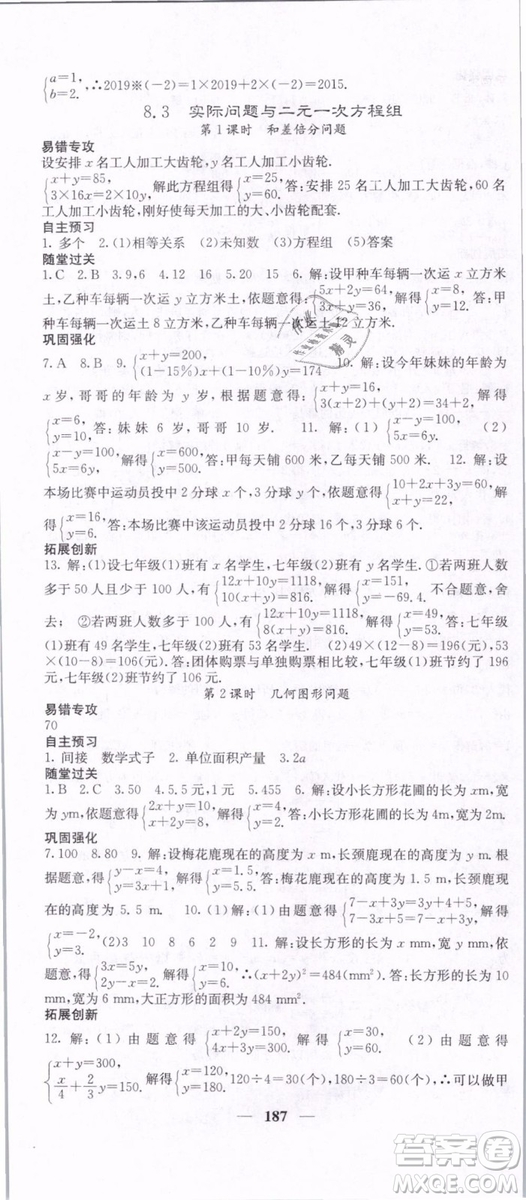 {a=1, b=2. ∴2019※(-2)=1×2019+2×(-2)=2015.
8.3 实际问题与二元一次方程组
第1课时 和差倍分问题
易错专攻
设安排 x 名工人加工大齿轮,y 名工人加工小齿轮.
{x+y=85, 3×16x=2×10y, 解此方程组得{x=25, y=60. 答:安排 25 名工人加工大齿轮,60 名
工人加工小齿轮,刚好使每天加工的大、小齿轮配套.
自主预习
1. 多个 2.(1)相等关系 (2)未知数 (3)方程组 (5)答案
随堂过关
1.C 2.B 3.9,6 4.12 16 5.20 15 6. 解:设甲种车每辆一次运 x 立方米
土,乙种车每辆一次运 y 立方米土,依题意得{5x+2y=64, 3x+y=36, 解得{x=8, y=12. 答:甲
种车每辆一次运土 8 立方米,乙种车每辆一次运土 12 立方米.
巩固强化
7.A 8.B 9.{x+y=200, (1-15%)x+(1-10%)y=174 10. 解:设今年妹妹的年龄为
x 岁,哥哥的年龄为 y 岁,依题意得{x+y=16, 3(x+2)+(y+2)=34+2, 解得
{x=6, y=10. 答:妹妹 6 岁,哥哥 10 岁. 11. 解:(1){x-y=100, 5x=6y. (2)
{x-y=100, 5x=6y, 解得{x=600, y=500. 答:甲每天铺 600 米,乙每天铺 500 米. 12. 解:
设本场比赛中运动员投中 2 分球 x 个,3 分球 y 个,依题意得{10+2x+3y=60, x+y=22,
解得{x=16, y=6. 答:本场比赛中该运动员投中 2 分球 16 个,3 分球 6 个.
拓展创新
13. 解:(1)设七年级(1)班有 x 名学生,七年级(2)班有 y 名学生. ①若两班人
数多于 100,则{12x+10y=1118, 8(x+y)=816. 解得{x=151, y=-49. 不合题意,舍
去;②若两班人数少于 100,则{12x+10y=1118, 10(x+y)=816. 解得{x=49, y=53. 答:七年级
(1)班有 49 名学生,七年级(2)班有 53 名学生. (2)49×(12-8)=196(元)
53×(10-8)=106(元). 答:团体购票与单独购票相比较,七年级(1)班节约了 196
元,七年级(2)班节约了 106 元.
第2课时 几何图形问题
易错专攻
70
自主预习
1. 间接 数学式子 2. 单位面积产量 3.2a
随堂过关
1.B 2.C 3.50 4.5,5 元,1 元 5.455 6. 解:设小长方形花圃的长为 x m,宽
为 y m,依题意得{2x+y=10, x+2y=8, 解得{x=4, y=2. 答:小长方形花圃的长为 4 m,宽为 2m.
巩固强化
7.100 8.80 9. 解:设梅花鹿现在的高度为 x m,长颈鹿现在的高度为 y m,依
题意得{y-x=4, y=3x+1, 解得{x=1.5, y=5.5. 答:梅花鹿现在的高度为 1.5 m,长颈鹿现
在的高度为 5.5 m. 10.(1)由题意得{7-x+3y=7-3+4, 7-x+3y=7+y+x, 解得
{x=-2, y=3. (2)3 10 8 6 2 9 11. 解:设长方形的长为 x mm,宽为 y mm,依
题意得{3x=5y, 2y-x=2, 解得{x=10, y=6. ∴(x+2y)²=484(mm²) 答:长方形的长为 10 mm,
宽为 6 mm,大正方形的面积为 484 mm².
拓展创新
12. 解:(1)由题意得{x+2y=150, 4x+3y=300, 解得{x=30, y=60. (2)由题意得
{x+y=300, x/4+2/3y=150, 解得{x=120, y=180. 120÷4=30,180÷60=3. 答:可以做甲
187